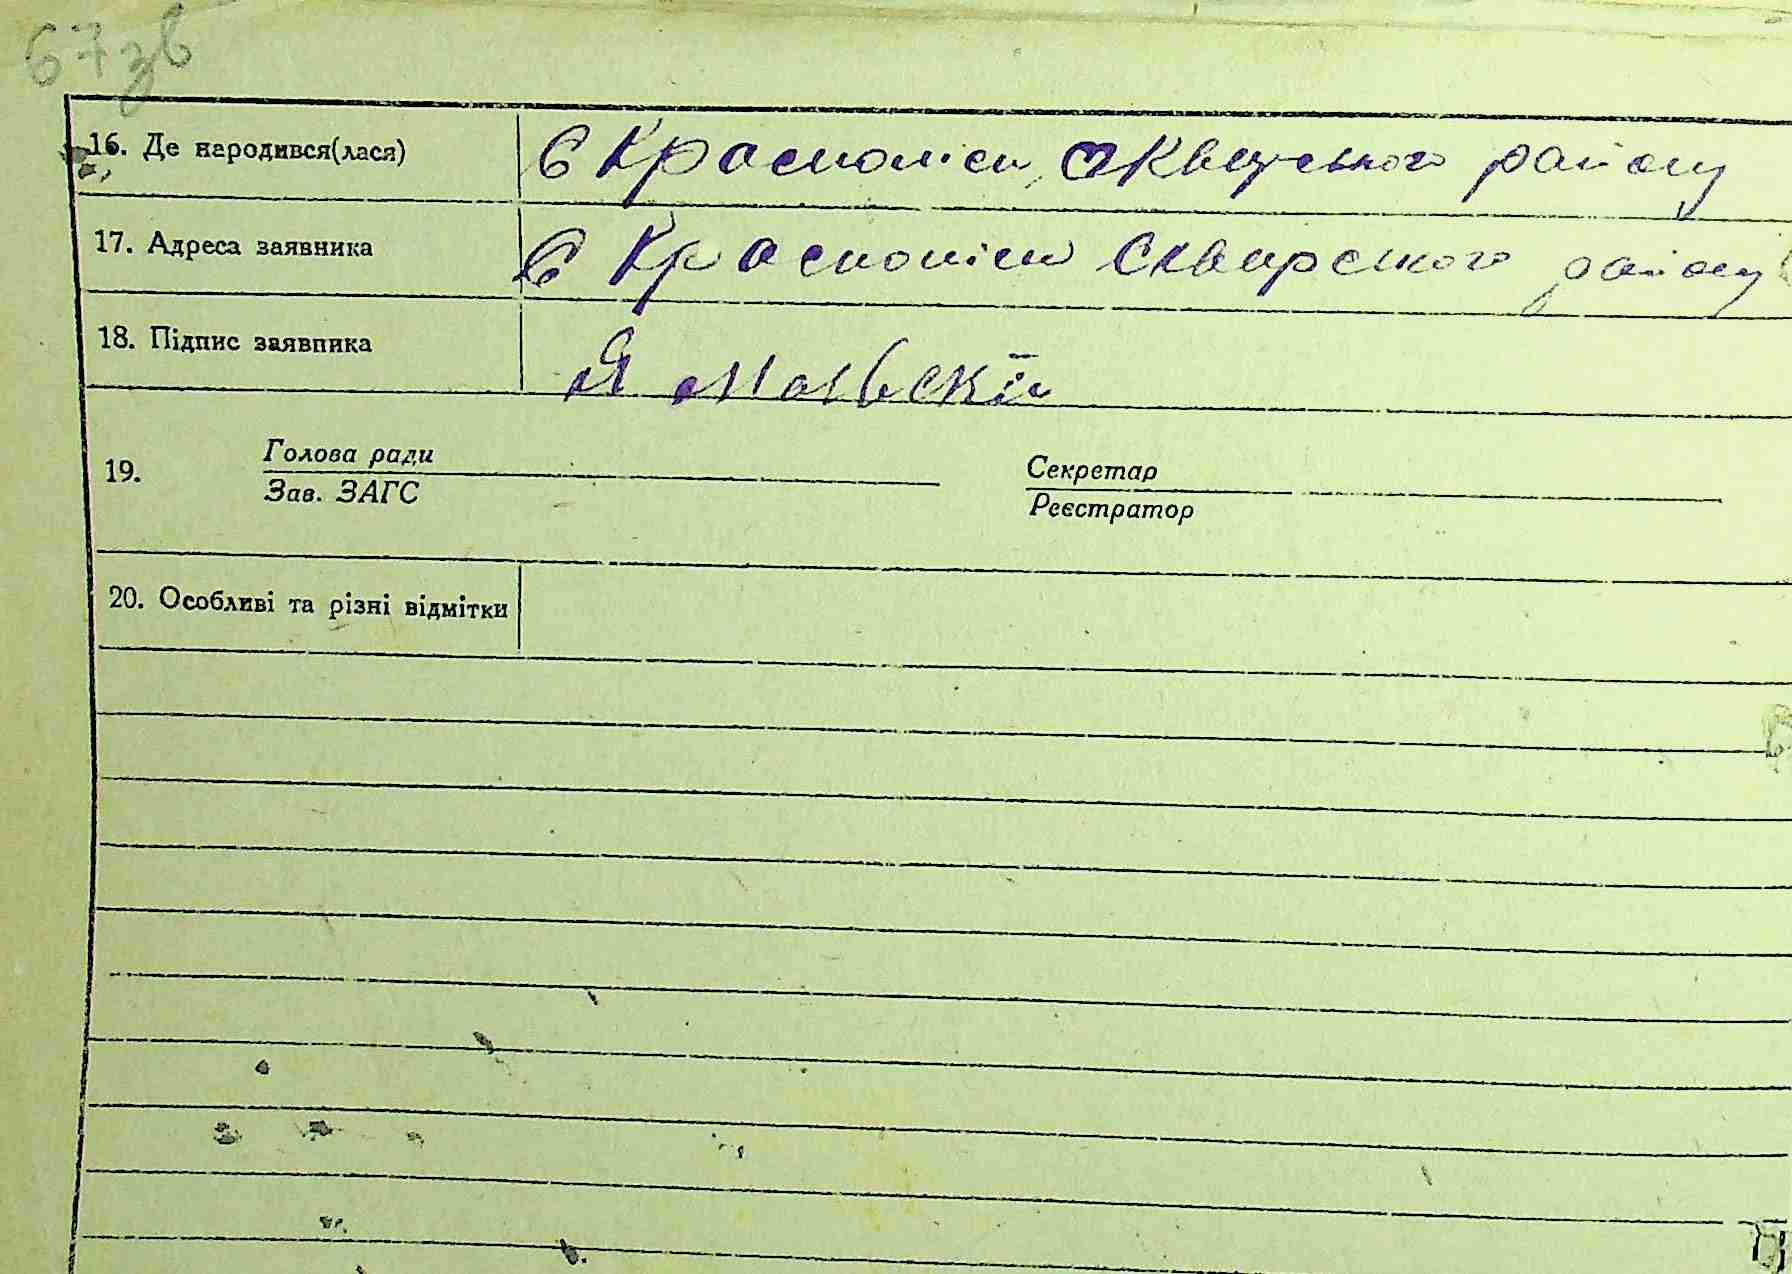 67зв
16. Де народився(лася) с Краснолісы, Сквирського району
17. Адреса заявника с Краснолісы Сквирского району
18. Підпис заявника Ямпльскій
19. Голова ради Секретар
Зав. ЗАГС Реєстратор
20. Особливі та різні відмітки